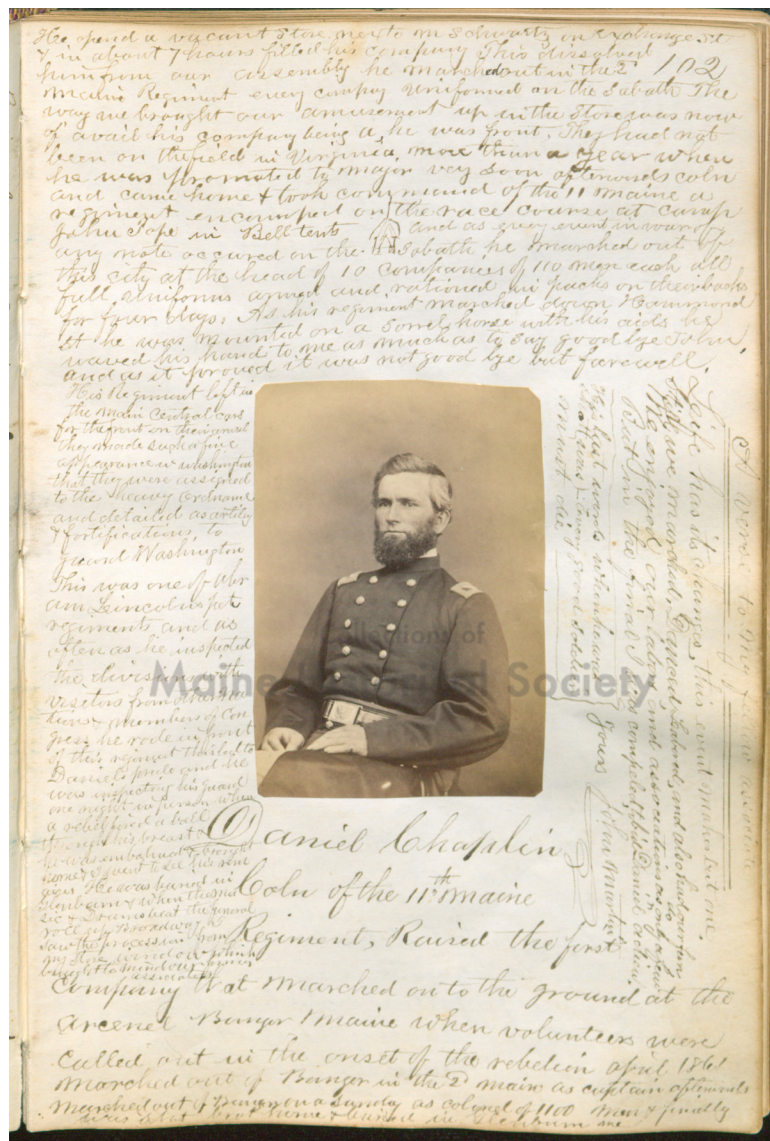 He opend a vacant Store next to Mr Schwartz on Exchange St
& in about 7 hours filled his company This dissolved
him from our assembly he marched out in the 2d 102
Maine Regiment every compay Uniformed on the Sabath The
way we brought our amusement up in the Store was now
of avail his company being a, he was front. They had not
been on the field in Virginia, more than a year when
he was promoted to major vey soon afterwords coln
and came home & took command of the 11 Maine a
regiment encamped on the race course at camp
John Pope in Bell tents and as every event in war of
any note accured on the Sabath he marched out of
this city at the head of 10 companies of 110 men each all
full Uniforms armed and rationed in packs on their backs
for four days. As his regiment marched down Hammond
St he was mounted on a Sorrel horse with his aids he
waved his hand to me as much as to say good bye John,
and as it proved it was not good bye but farewell.
His Regiment left in
the Main Central cars
for the front on their arrival
they made such a fine
appearance in washington
that they were assigned
to the heavy Ordnance
and detailed as artilry
& fortifications, to
guard Washington
This was one of Abr
am Lincolns pet
regiments and as
often as he inspected
the divisions with
visitors from other na
tions & members of Con
gress he rode in front
of this regiment this led to
Daniels pride and he
was inspecting his guard
one night in person when
a rebel fired a ball
through his breast &
he was embalmed & brought
home & I went to see his rem
ains. He was buried in
Glenburn & when the mu
sic & Drums beat the
roll up Broadway I
saw the procession from
my Store window which
brought to mind our
association
A verse to my fellow associate
Life has its changes, this event makes but one.
Still we marched, Danced, Labored, and also had our fun
We enjoyed our labor, and associations
But in the final I am compeled, to bid Daniel adieu.
His last words when he was
shot was, Every good soldier
must die
Yours John Martin
Collections of
Maine Historical Society
Daniel Chaplin
Coln of the 11th Maine
Regiment, Raised the first
Company that marched on to the ground at the
arcenel Bangor Maine when volunteers were
called out in the onset of the rebelion april 1861
marched out of Bangor in the 2d main as captain afterwards
marched out of Bangor on a Sunday as colonel of 1100 men & finally
was shot brot home & buried in Glenburn me